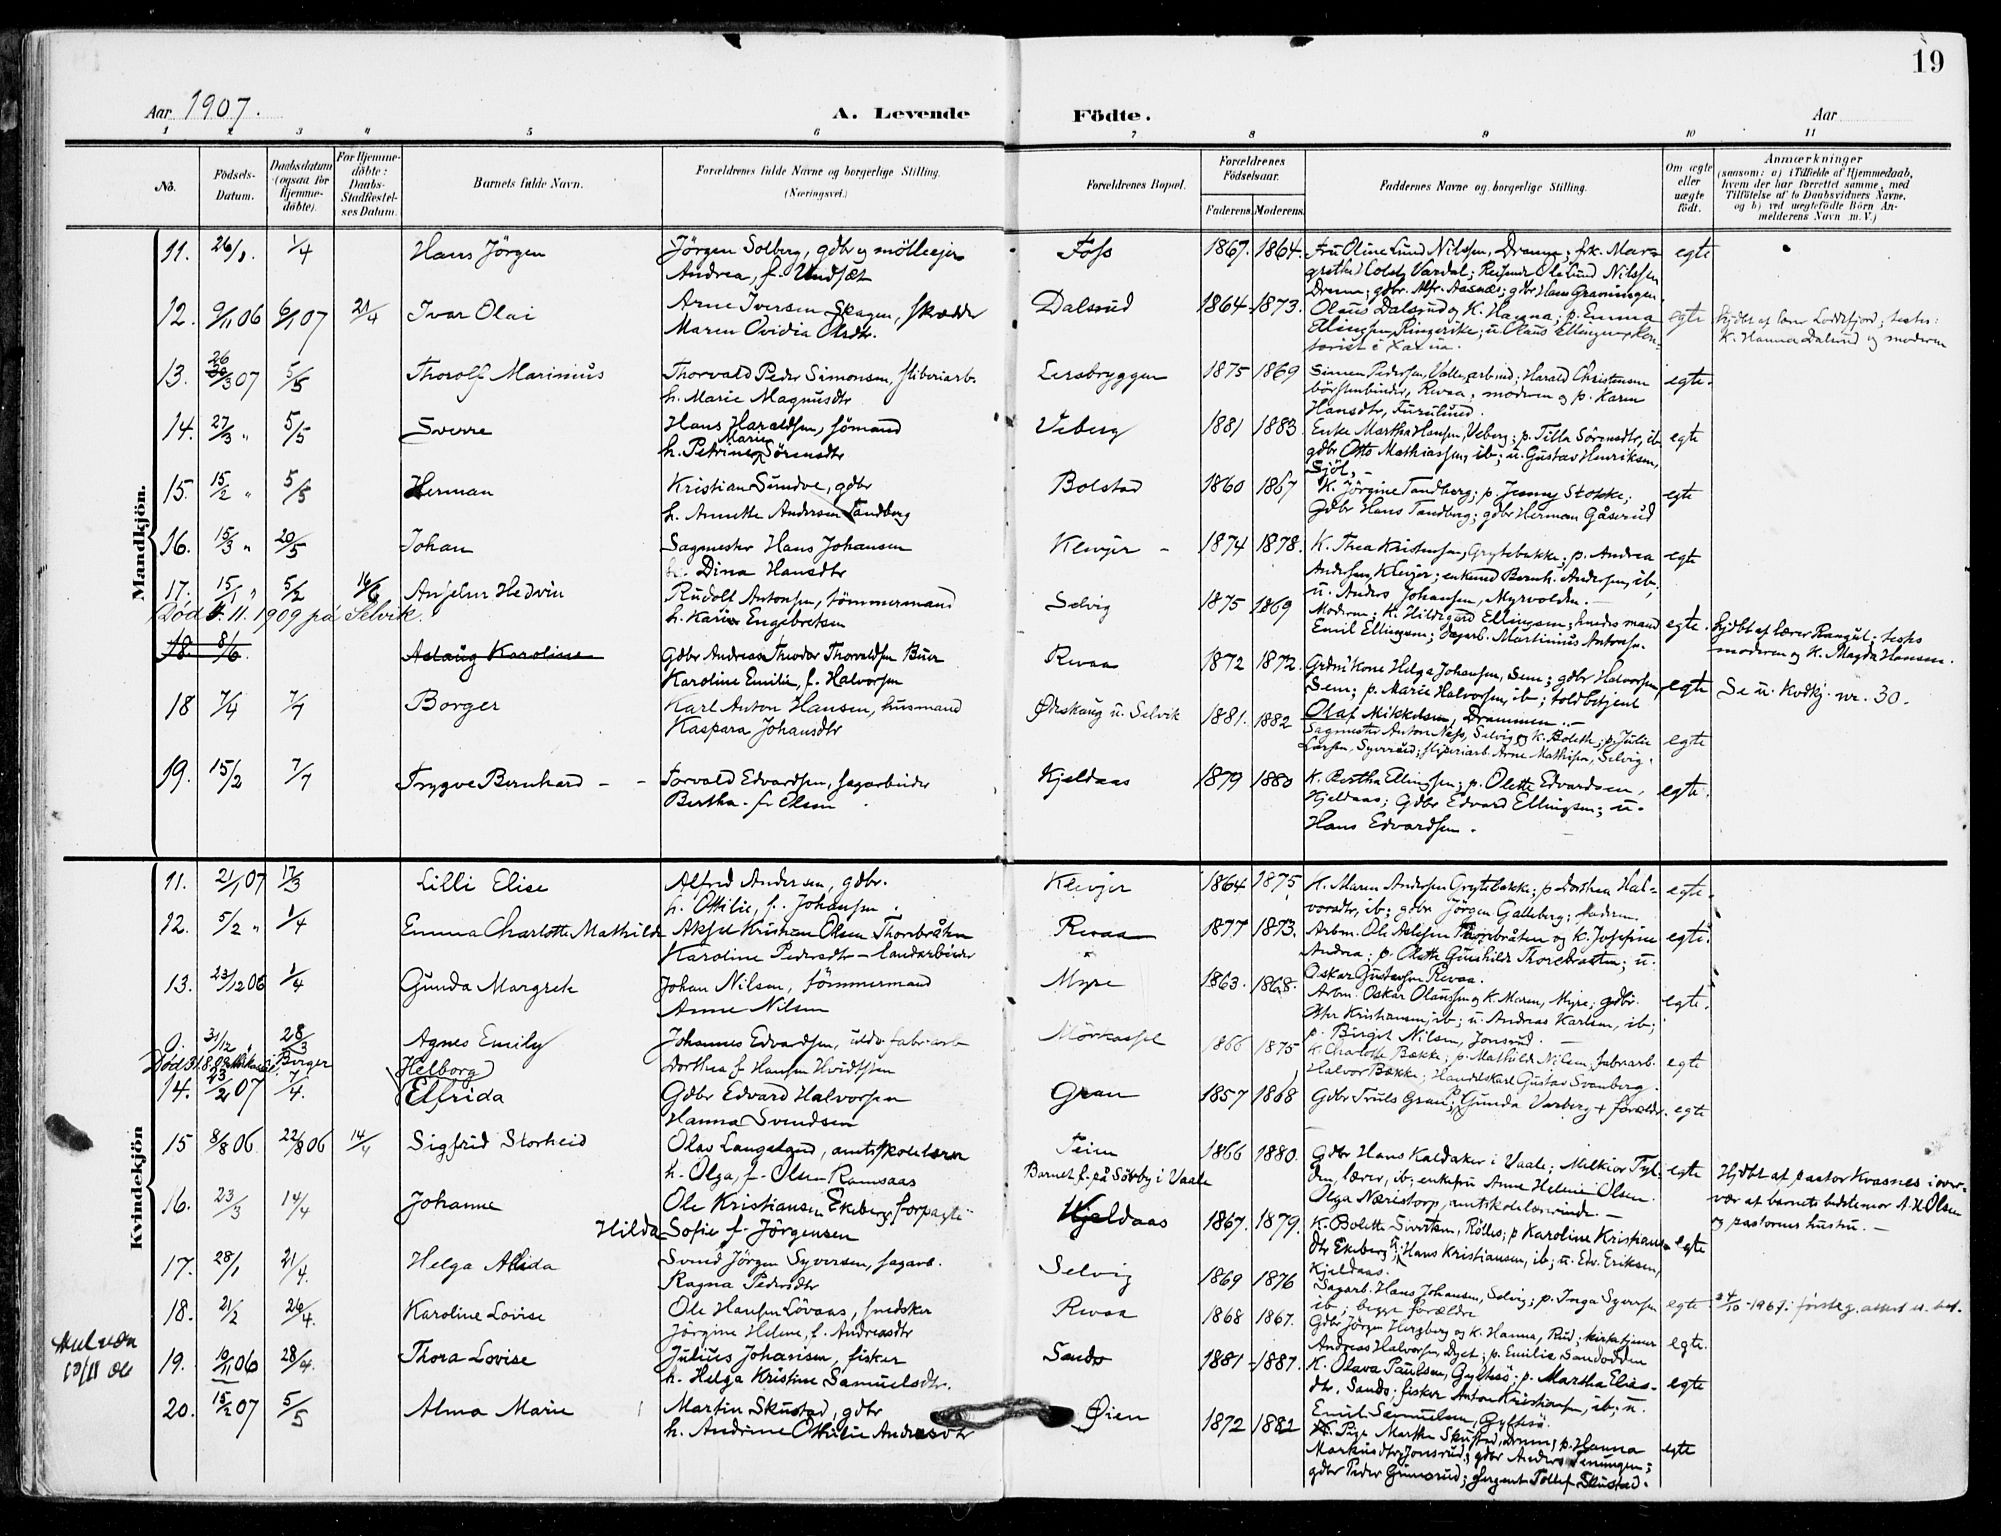 19
Aar 1907.
A. Levende
Födte.
Aar
1 2 3 4 5 6 7 8 9 10 11
No.
Födsels-Datum.
Daabsdatum (ogsaa for Hjemme-döbte).
For Hjemme-döbte: Daabs-Stadfæstel-ses Datum.
Barnets fulde Navn.
Forældrenes fulde Navne og borgerlige Stilling. (Næringsvei.)
Forældrenes Bopæl.
Forældrenes Födselsaar.
Faderens. Moderens.
Faddernes Navne og borgerlige Stilling.
Om ægte eller uægte födt.
Anmærkninger
(saasom: a) i Tilfælde af Hjemmedaab,
hvem der har forrettet samme, med
Tilföielse af to Daabsvidners Navne,
og b) ved uægtefödte Börn An-
melderens Navn m. V.)
Mandkjön.
11. 26/1 1/4 Hans Jörgen Jörgen Solberg, gdbr og mölleejer Foss 1867. 1864. Fru Oline Lund Nilssen, Dramm; frk. Mar- egte
Andrea, f.
12. 9/11 06 6/1 07 21/4 Ivar Olai Arne Iversen Skagen, skrædder Dalsrud 1864. 1873. Olaus Dalsrud og K. Hanna; p. Emma egte
Maren Ovidia Olsdtr. K. Hanna Dalsrud og moderen
13. 26/3 07 5/5 Thorolf Marinius Thorvald Peder Simonsen, sliberiarb. Eersbryggen 1875 1869 Harald Christensen egte.
h. Marie Magnusdtr börstenbinder, Revaa; moderen og p. Karen
Hansdtr, Furulund.
14. 27/3 " 5/5 Sverre Hans Haraldsen, sömand Veberg 1881 1883 Enke Martha Hansen, Veberg; p. Tilla Sörensdtr, ib. egte
h. Petrine Marie Sörensdtr gdbr Otto Mathiassen, ib; u. Gustav Henriksen,
15. 15/2 " 5/5 Herman Kristian Sundve, gdbr Bolstad 1860 1867 K. Jörgine Tandberg; p. Jenny Stokke; egte
h. Annette Andersen Tandberg Gdbr Hans Tandberg; gdbr Herman Gåserud
16. 15/3 " 20/5 Johan Sagmester Hans Johansen Klevjer 1874 1878. K. Thea Kristensen, Grytebakke; p. Andrea egte
h. Dina Hansdtr Andersen, Klevjer; enkemd Bernh. Andersen, ib;
u. Anders Johansen, Myrvolden.
17. 15/1 " 5/2 16/6 Anselm Hedvin Rudolf Antonsen, tömmermand Selvig 1875 1869 Moderen; K. Hildegard Ellingsen; egte.
Död 4. 11. 1909 på Selvik. h. Karen Engebretsen Emil Ellingsen; dagarb. Martinius Antonsen.
moderen og K. Magda Hansen.
18. 8/6. Aslaug Karoline Gdbr Andreas Theodor Thorvaldsen Buer Revaa 1872 1872. Grdm.kone Helga Johansen, Sem; gdbr Halvorsen, egte Se u. Kvdkj. nr. 30.
Karoline Emilie, f. Halvorsen Sem; p. Marie Halvorsen, ib; toldbetjent
Olaf Mikkelsen, Drammen.
18 7/4 7/7 Borger Karl Anton Hansen, husmand Ødeskaug u. Selvik 1881. 1882 Sagmester Anton Næss, Selvig og K. Bolette; p. Julie egte
Kaspara Johansdtr Larsen, Syverud; sliperiarb. Arne Mathisen, Selvig.
19. 15/2 7/7 Trygve Bernhard Torvald Edvardsen, sagarbeider Kjeldaas 1879 1880 K. Bertha Ellingsen; p. Olette Edvardsen, egte.
Bertha f. Olsen Kjeldaas; Gdbr Edvard Ellingsen; u.
Hans Edvardsen.
Kvindekjön
11. 21/1 07 17/3 Lilli Elise Alfred Andersen, gdbr. Klevjer 1864 1875 K. Maren Andersen Grytebakke; p. Dorthea Hal- egte.
h. Ottilie, f. Johansen. vorsdtr, ib; gdbr Jörgen Galleberg; faderen.
12. 5/2 " 1/4 Emma Charlotte Mathilde Aksel Kristian Olsen Thorsbråten Revaa 1877 1873. Arbm. Ole Adolfsen og K. Josefine egte.
Karoline Pedersdtr - landarbeider Andrea; p. Olette Gunhilde; u.
Oskar Gustavsen Revaa.
13. 23/12 06 1/4 Gunda Margrete Johan Nilsen, tömmermand Myre 1863. 1868. Arbm. Oskar Olaussen og K. Maren, Myre; gdbr. egte.
Anne Nilsen Kristiansen, ib; u. Andreas Karlsen, ib;
p. Birgit Nilsen, Jonsrud.
0. 31/12 28/3 Agnes Emily Johannes Edvardsen, fabr.arb. Mörkassel 1866 1875 K. Charlotte Bakke; p. Mathilde Nilsen, fabrarb. egte
Helborg Dorthea f. Hansen Hvidtsten Halvor Bakke; Handelskarl Gustav Svanberg.
14. 23/2 07 1/4. Elfrida Gdbr Edvard Halvorsen Gran 1857 1868 Gdbr Truls Gran; p. Gunda Varberg + forældr. egte
Hanna Svendsen
15 8/8 06 22/8 06 14/4 Sigfrid Storheid Olav Langeland, amtsskolelærer Teien 1866 1880. Gdbr Hans Kaldaker i Vaale; Melkior Tyl- egte Hjdbt af pastor Kvasnes i over-
h. Olga, f. Olsen Ramsaas Barnet f. på Söbby i Vaale den, lærer, ib; enkefru Anne Helene Olsen. vær af barnets bedstemor A. H. Olsen
Olga Næristorp, amtskolelærerinde. og pastorens hustru.
16. 23/3 14/4 Johanne Ole Kristiansen Ekeberg, forpagter Kjeldaas 1867. 1879. K. Bolette Sivertsen, Rölles; p. Karoline Kristians- egte
Hilda Sofie f. Jörgensen dtr Ekeberg; u. Hans Kristiansen, ib; u. Edv. Eriksen,
Kjeldaas.
17. 28/1 21/4. Helga Alida Svend Jörgen Syversen, sagarb. Selvig 1869 1876 Sagarb. Hans Johansen, Selvig; p. Inga Syversen egte
Ragna Pedersdtr ib; begge forældre
18. 21/2 26/4. Karoline Lovise Ole Hansen Lövaas, snedker Revaa 1868 1867. Gdbr Jörgen Herzberg og K. Hanna, Rud; kirketjener egte.
Jörgine Helene, f. Andreasdtr Andreas Halvorsen, Dyet; p. Emilie Sandodden
19. 10/11 06 28/4. Thora Lovise Julius Johansen, fisker Sando 1881 1887. K. Olava Paulsen, Gyltesö; p. Martha Elias- egte
h. Helga Kristine Samuelsdtr. dtr. Sando; fisker Anton Kristiansen, ib; u.
Emil Samuelsen, Gyltesö.
20. 15/2 07 5/5 Alma Marie Martin Skustad, gdbr Øien 1872 1882 K. Pige Marthe Skustad, Dramm; p. Hanna egte
h. Andrine Othilie Andersdtr Markusdtr, Jonsrud; gdbr Anders Teningen;
gdbr Peder Grimsrud; sergent Tollef Skustad.